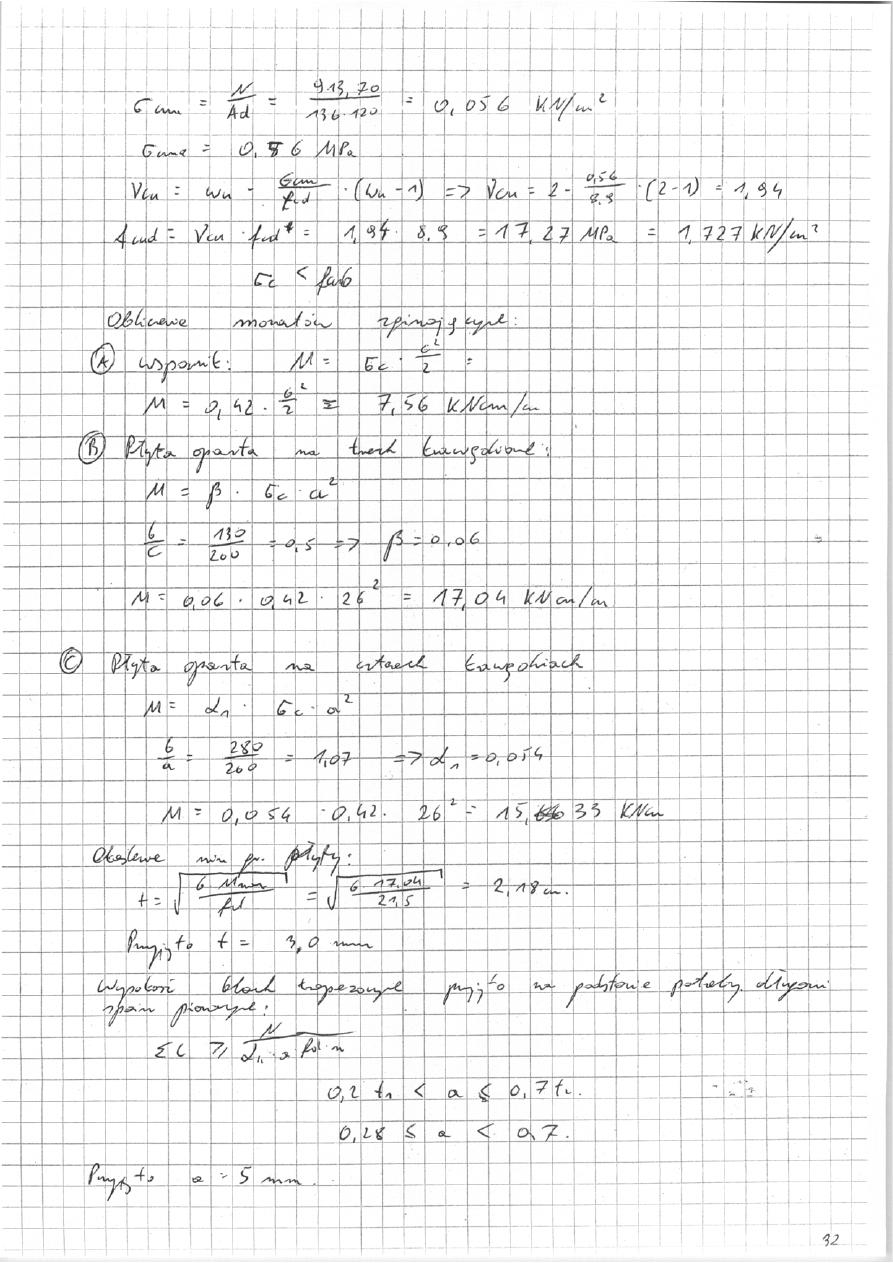 σcum = N/Ad = 913,70/136·120 = 0,056 KN/cm²
σcum = 0,56 MPa
νcu = ωu - σcum/fcd · (ωu - 1) => νcu = 2 - 0,56/8,9 · (2-1) = 1,94
fcud = νcu · fcd* = 1,94 · 8,9 = 17,27 MPa = 1,727 KN/cm²
σc < fcub
Obliczenie momentów zginających:
(A) wspornik: M = σc · c²/2 =
M = 0,42 · 6²/2 = 7,56 KNcm/cm
(B) Płyta oparta na trzech krawędziach:
M = β · σc · a²
b/c = 130/200 = 0,5 => β = 0,06
M = 0,06 · 0,42 · 26² = 17,04 KNcm/cm
(C) Płyta oparta na czterech krawędziach
M = α₁ · σc · a²
b/a = 280/260 = 1,07 => α₁ = 0,054
M = 0,054 · 0,42 · 26² = 15,33 KNcm
min gr. płyty:
t = √(6 Mmax/fd) = √(6·17,04/21,5) = 2,18 cm.
Przyjęto t = 3,0 mm
Wysokość blach trapezowych przyjęto na podstawie potrzeby długości
spoin pionowych:
Σl ≥ N/α₁₁·a·fd·n
0,2 t₁ < a ≤ 0,7 t₂.
0,28 ≤ a < 0,7.
Przyjęto a = 5 mm.
32